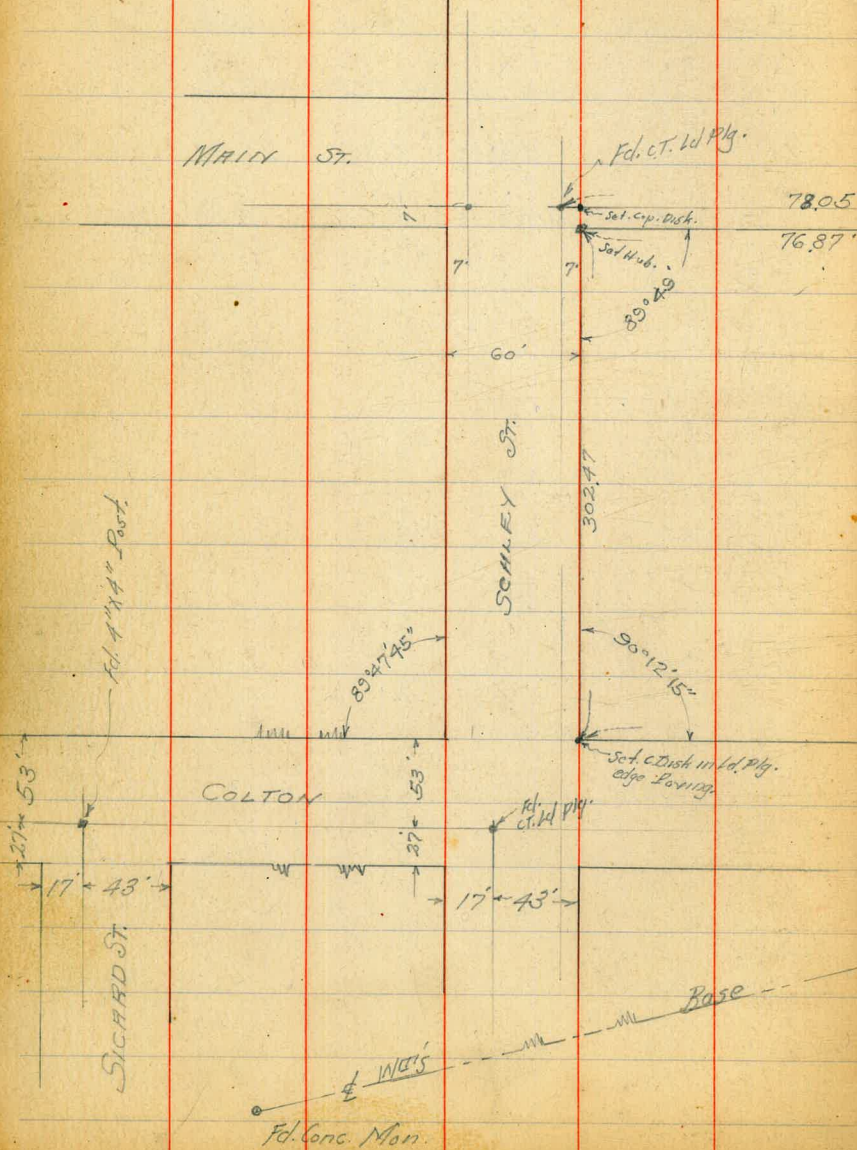 MAIN ST.
Fd. C.T. Ld Plg.
78.05
Set. Cop. Disk.
76.87'
Set Hub.
7'
7'
7'
89°49'
60'
SCHLEY ST.
302.47
Fd. 4"x4" Post.
89°47'45"
90°12'15"
Set. C. Disk in Ld. Plg.
edge Paving.
COLTON
53'
27'
53'
27'
Fd.
CT. Ld Plg.
17' 43'
17' 43'
SICARD ST.
Base
℄
Fd. Conc. Mon.